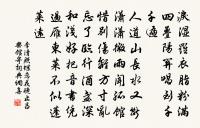 淚濕羅衣脂粉滿
四疊陽關唱到千
千遍
人道山長水又斷
瀟瀟微雨聞孤館
惜別傷離方寸亂
忘了臨行酒盞深
和淺好把音書憑
過雁東萊不似蓬
萊遠
李清照蝶戀花晚止昌
樂館寄姊妹